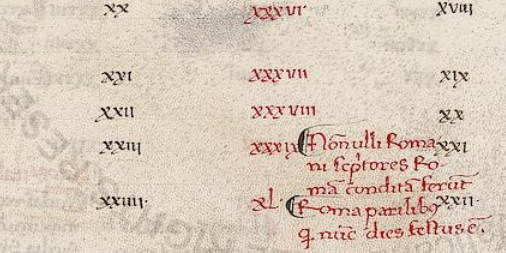 xx xxxvi xviij
xxi xxxvii xix
xxii xxxviii xx
xxiii xxxix Nōnulli Roma xxi
ni scp̄tores Ro-
mā conditā ferūt
xxiiii· xl Roma parilibꝰ xxii·
q̄ nūc dies festus ē.